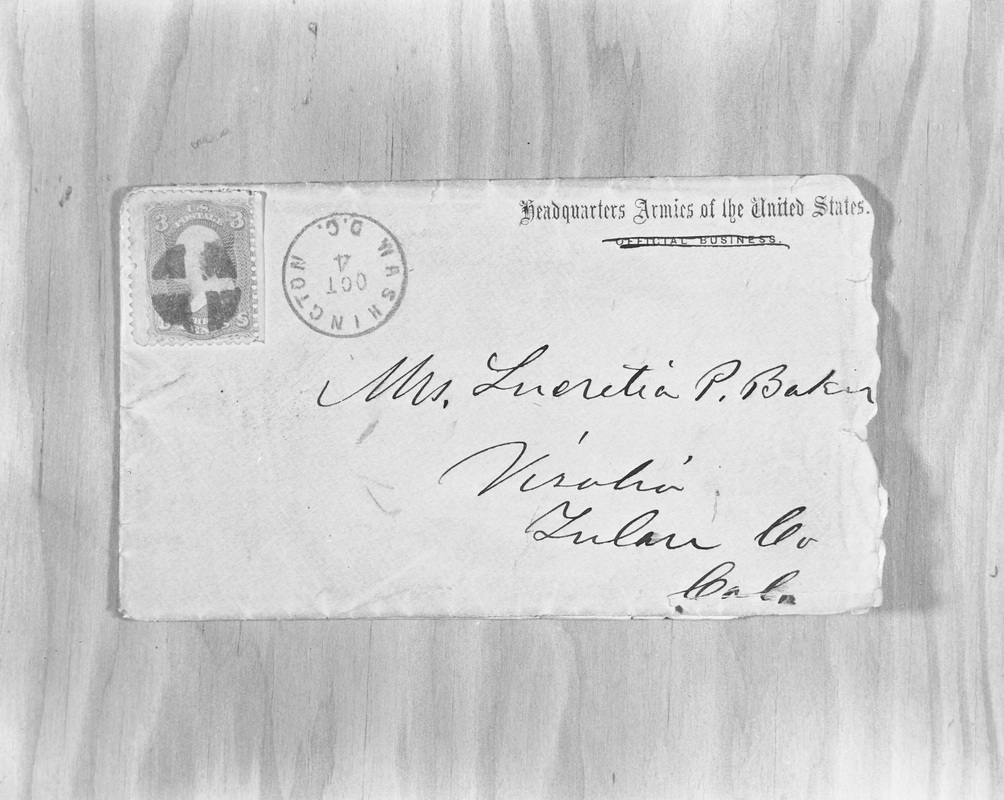 Headquarters Armies of the United States.
OFFICIAL BUSINESS.
3 U.S. POSTAGE 3
WASHINGTON D.C.
OCT
4
Mrs. Lucretia P. Baker
Visalia
Tulare Co
Cala